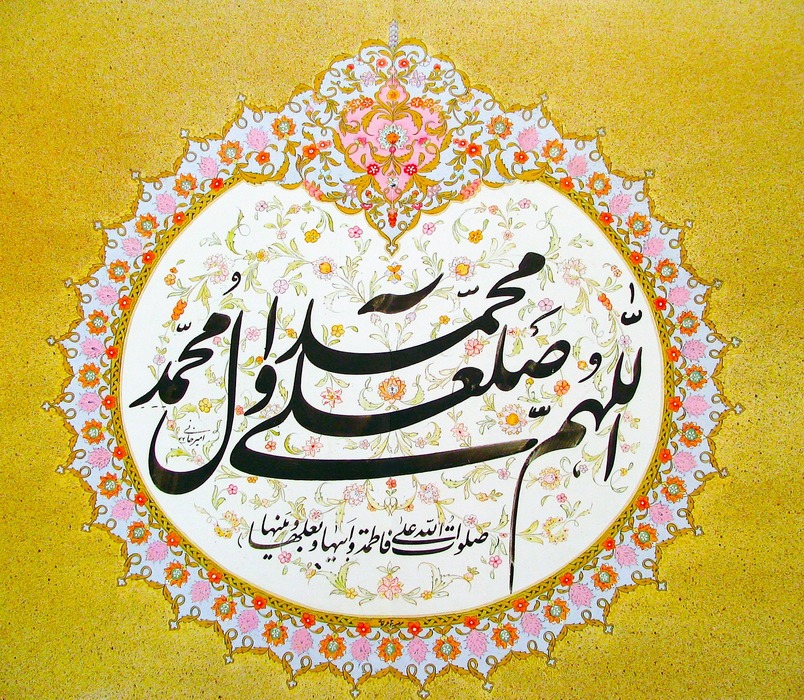 اللّهمّ صَلّ علی محمّد و آل محمّد
(صلوات اللّه علی فاطمة و ابیها و بعلها و بنیها)